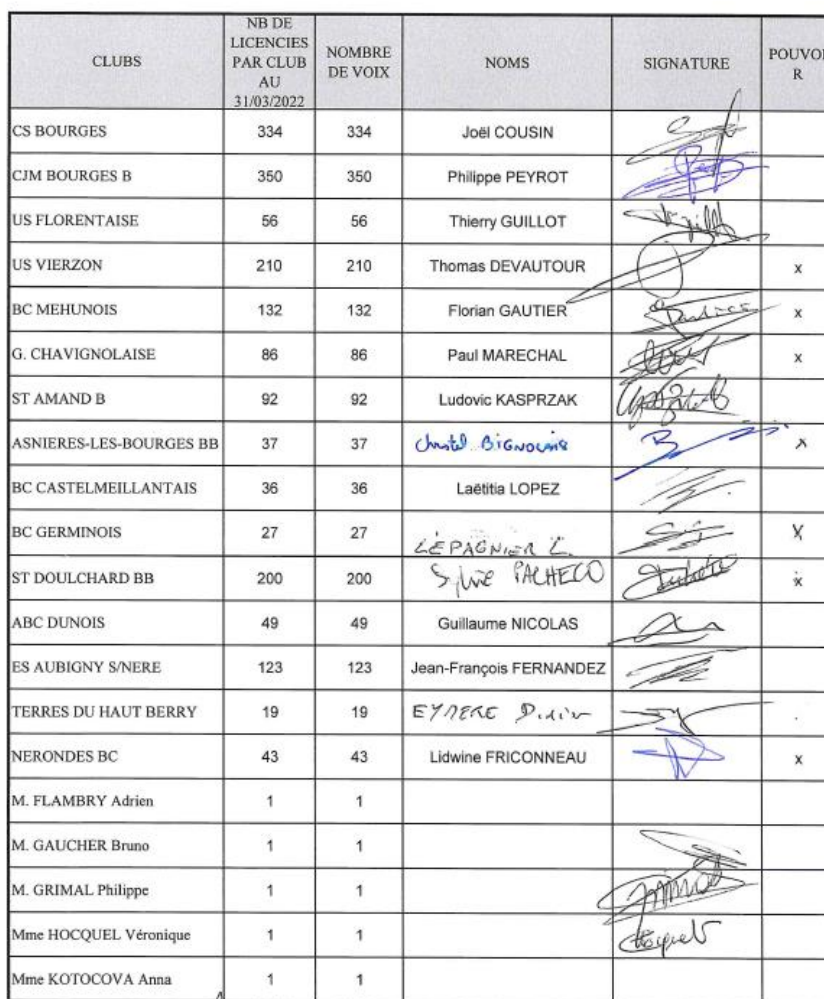 CLUBS NB DE LICENCIES PAR CLUB AU 31/03/2022 NOMBRE DE VOIX NOMS SIGNATURE POUVOI R
CS BOURGES 334 334 Joël COUSIN
CJM BOURGES B 350 350 Philippe PEYROT
US FLORENTAISE 56 56 Thierry GUILLOT
US VIERZON 210 210 Thomas DEVAUTOUR x
BC MEHUNOIS 132 132 Florian GAUTIER x
G. CHAVIGNOLAISE 86 86 Paul MARECHAL x
ST AMAND B 92 92 Ludovic KASPRZAK
ASNIERES-LES-BOURGES BB 37 37 x
BC CASTELMEILLANTAIS 36 36 Laëtitia LOPEZ
BC GERMINOIS 27 27 LÉPAGNIER L. x
ST DOULCHARD BB 200 200 Sylvie PACHECO x
ABC DUNOIS 49 49 Guillaume NICOLAS
ES AUBIGNY S/NERE 123 123 Jean-François FERNANDEZ
TERRES DU HAUT BERRY 19 19
NERONDES BC 43 43 Lidwine FRICONNEAU x
M. FLAMBRY Adrien 1 1
M. GAUCHER Bruno 1 1
M. GRIMAL Philippe 1 1
Mme HOCQUEL Véronique 1 1 Hocquel
Mme KOTOCOVA Anna 1 1